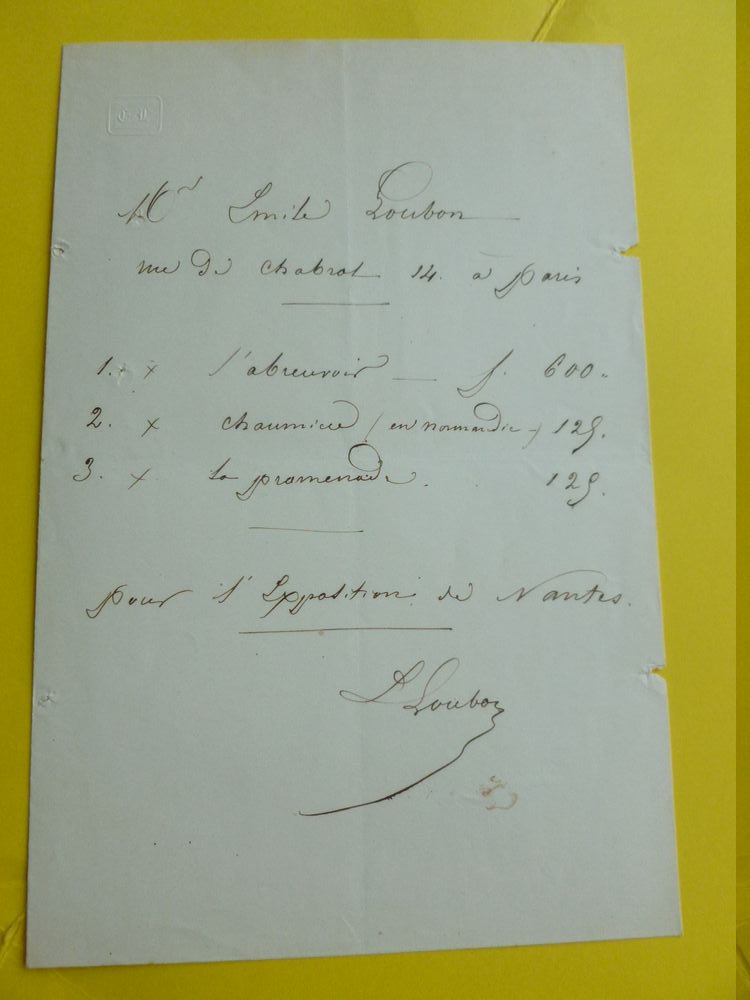 Mr Emile Loubon
rue de chabrol 14. à Paris
1. x l'abreuvoir — f. 600 "
2. x chaumière (en normandie -) 125.
3. x la promenade. 125.
pour l'Exposition de Nantes.
E Loubon